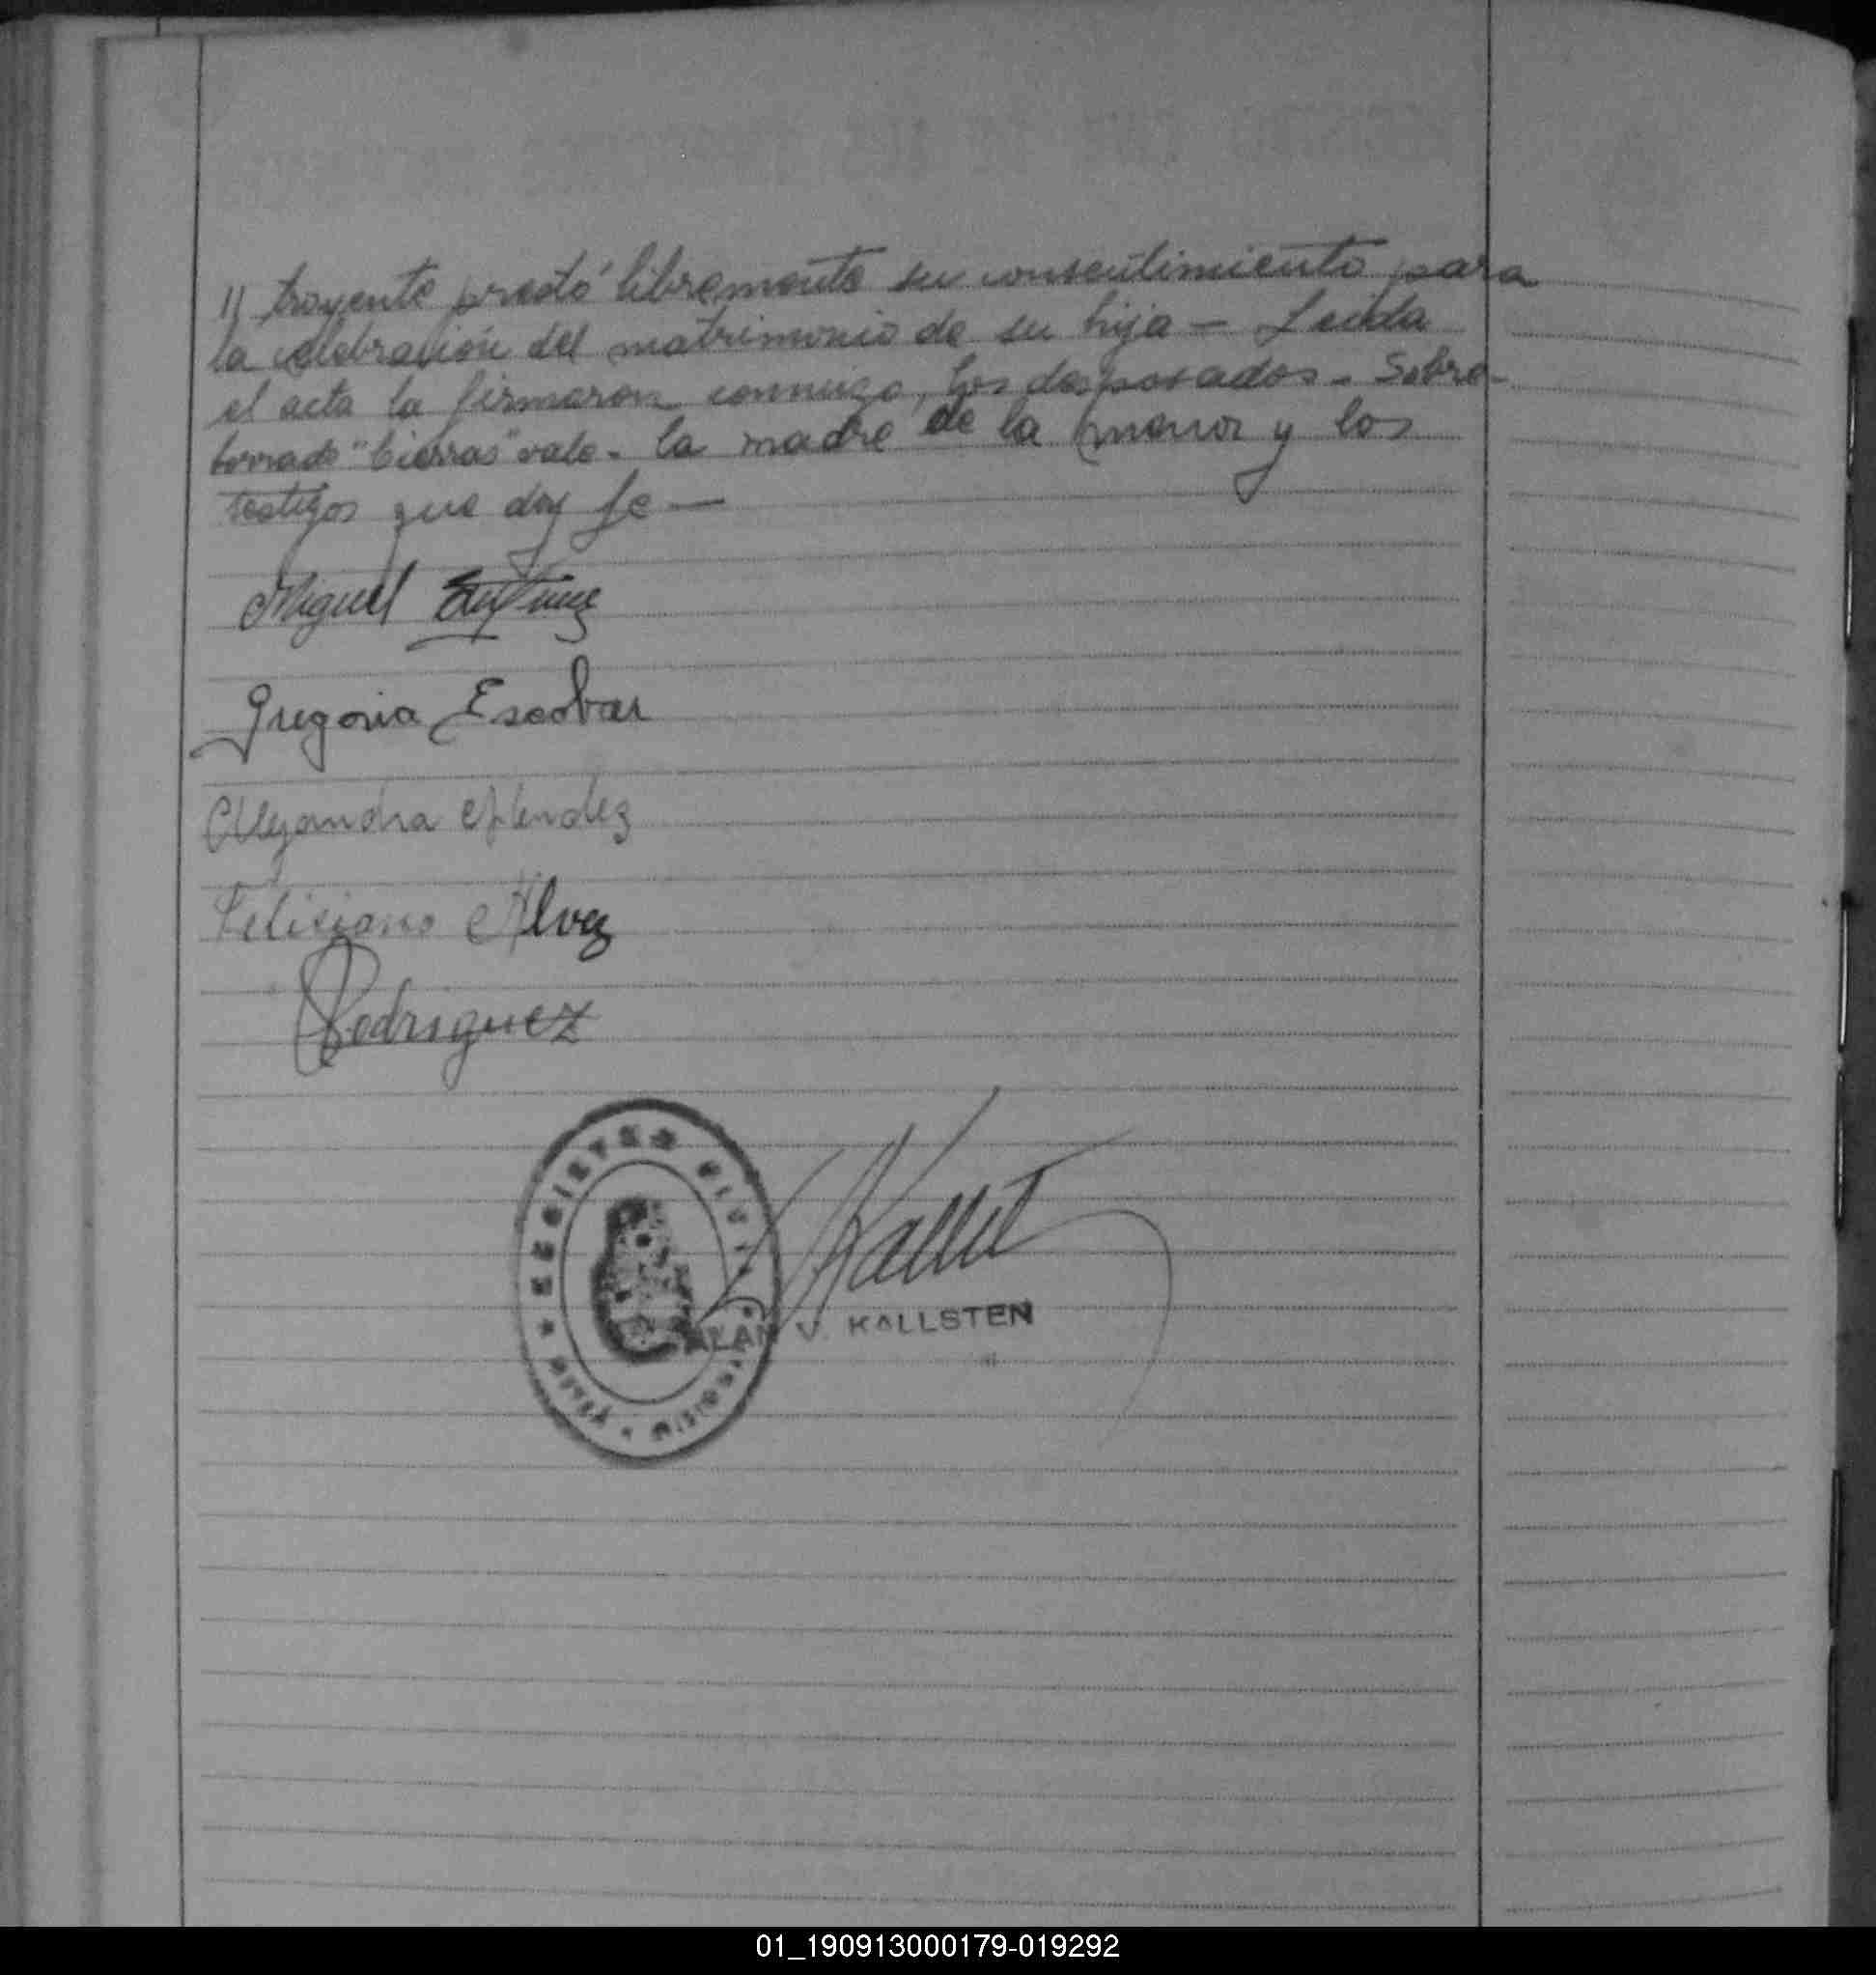 // trayente prestó libremente su consentimiento para
la celebración del matrimonio de su hija — Leida
el acta la firmaron conmigo, los desposados - Sobre-
borrado "tierras" vale - la madre de la menor y los
testigos que doy fe —
Miguel
Gregoria Escobar
Alejandra Mendez
Felisiano Alvez
Rodriguez
REGISTRO CIVIL
ALAN V. KALLSTEN
01_190913000179-019292